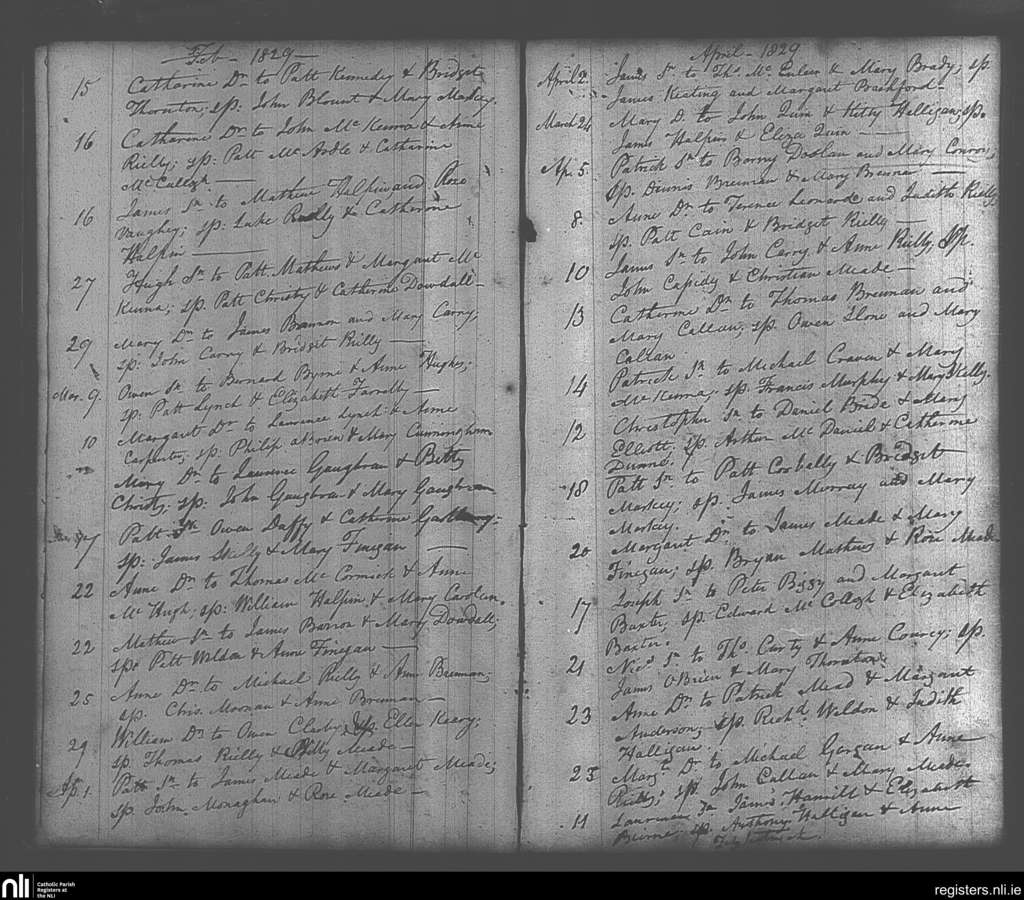 Feb - 1829
15 Catharine Dr. to Patt Kennedy & Bridget
Thornton; sp: John Blount & Mary Maskey.
16 Catharine Dr. to John Mc Kenna & Anne
Rielly; sp: Patt Mc Ardle & Catharine
Mc Cullogh
16 James Sn. to Mathew Halpin and Rose
Vaughey; sp: Luke Rielly & Catherine
Halpin
27 Hugh Sn. to Patt Mathews & Margaret Mc
Kenna; sp. Patt Christy & Catherine Dowdall
29 Mary Dr. to James Brannon and Mary Carry;
sp: John Carry & Bridget Rielly
Mar. 9. Owen Sn. to Bernard Byrne & Anne Hughes;
sp: Patt Lynch & Elizabeth Farrelly
10 Margaret Dr. to Lawrence Lynch & Anne
Carpenter; sp: Philip OBrien & Mary Cunningham
Mary Dr. to Laurence Gaughran & Betty
Christy; sp: John Gaughran & Mary Gaughran
7 Patt Sn. Owen Daffy & Catherine
sp: James Skelly & Mary Finegan
22 Anne Dr. to Thomas Mc Cormick & Anne
Mc Hugh; sp: William Halpin & Mary Carolin.
22 Mathew Sn. to James Barron & Mary Dowdall;
sp: Pett Weldon & Anne Finegan
25 Anne Dr. to Michael Rielly & Anne Brennan;
sp. Chris. Moonan & Anne Brennan
29 William Dr. to Owen Clarke & Ellen Keary;
sp. Thomas Rielly & Meade
Ap. 1. Patt Sn. to James Meade & Margaret Meade;
sp. John Monaghan & Rose Meade
April - 1829
April 2. James Sn. to Ths. Mc Enleer & Mary Brady; sp.
James Keating and Margaret Brashford
March 24 Mary D. to John Quin & Kitty Halligan; sp.
James Halpin & Eleza Quin
Ap. 5. Patrick Sn. to Barny Doolan and Mary Conroy;
sp. Dennis Brennan & Mary
8. Anne Dr. to Terence Leonard and Judith Rielly
sp. Patt Cain & Bridget Rielly
10 James Sn. to John Carry & Anne Rielly, sp.
John Cassidy & Christian Meade
13 Catherine Dr. to Thomas Brennan and
Mary Callan, sp. Owen Slone and Mary
Callan
14 Patrick Sn. to Michael Craven & Mary
Mc Kenna, sp. Francis Murphy & Mary Skelly.
12 Christopher Sn. to Daniel Brade & Mary
Elliott, sp. Arthur Mc Daniel & Catherine
Dunne.
18 Patt Sn. to Patt Corbally & Bridget
Maskey; sp. James Murray and Mary
Maskey.
20 Margaret Dr. to James Meade & Mary
Finegan; sp. Bryan Mathews & Rose Meade
17 Joseph Sn. to Peter Biggy and Margaret
Baxter, sp. Edward Mc Cullogh & Elizabeth
Baxter.
21 Nics. Sn. to Ths. Curty & Anne Courcy; sp.
James O'Brien & Mary Thornton
23 Anne Dr. to Patrick Mead & Margaret
Anderson; sp. Richd. Weldon & Judith
Halligan.
23 Margt. Dr. to Michael Gargan & Anne
Rielly; sp. John Callan & Mary Meade
11 Laurence Sn. James Hamill & Elizabeth
Beirne, sp. Anthony Halligan & Anne
nli
Catholic Parish
Registers at
the NLI
registers.nli.ie